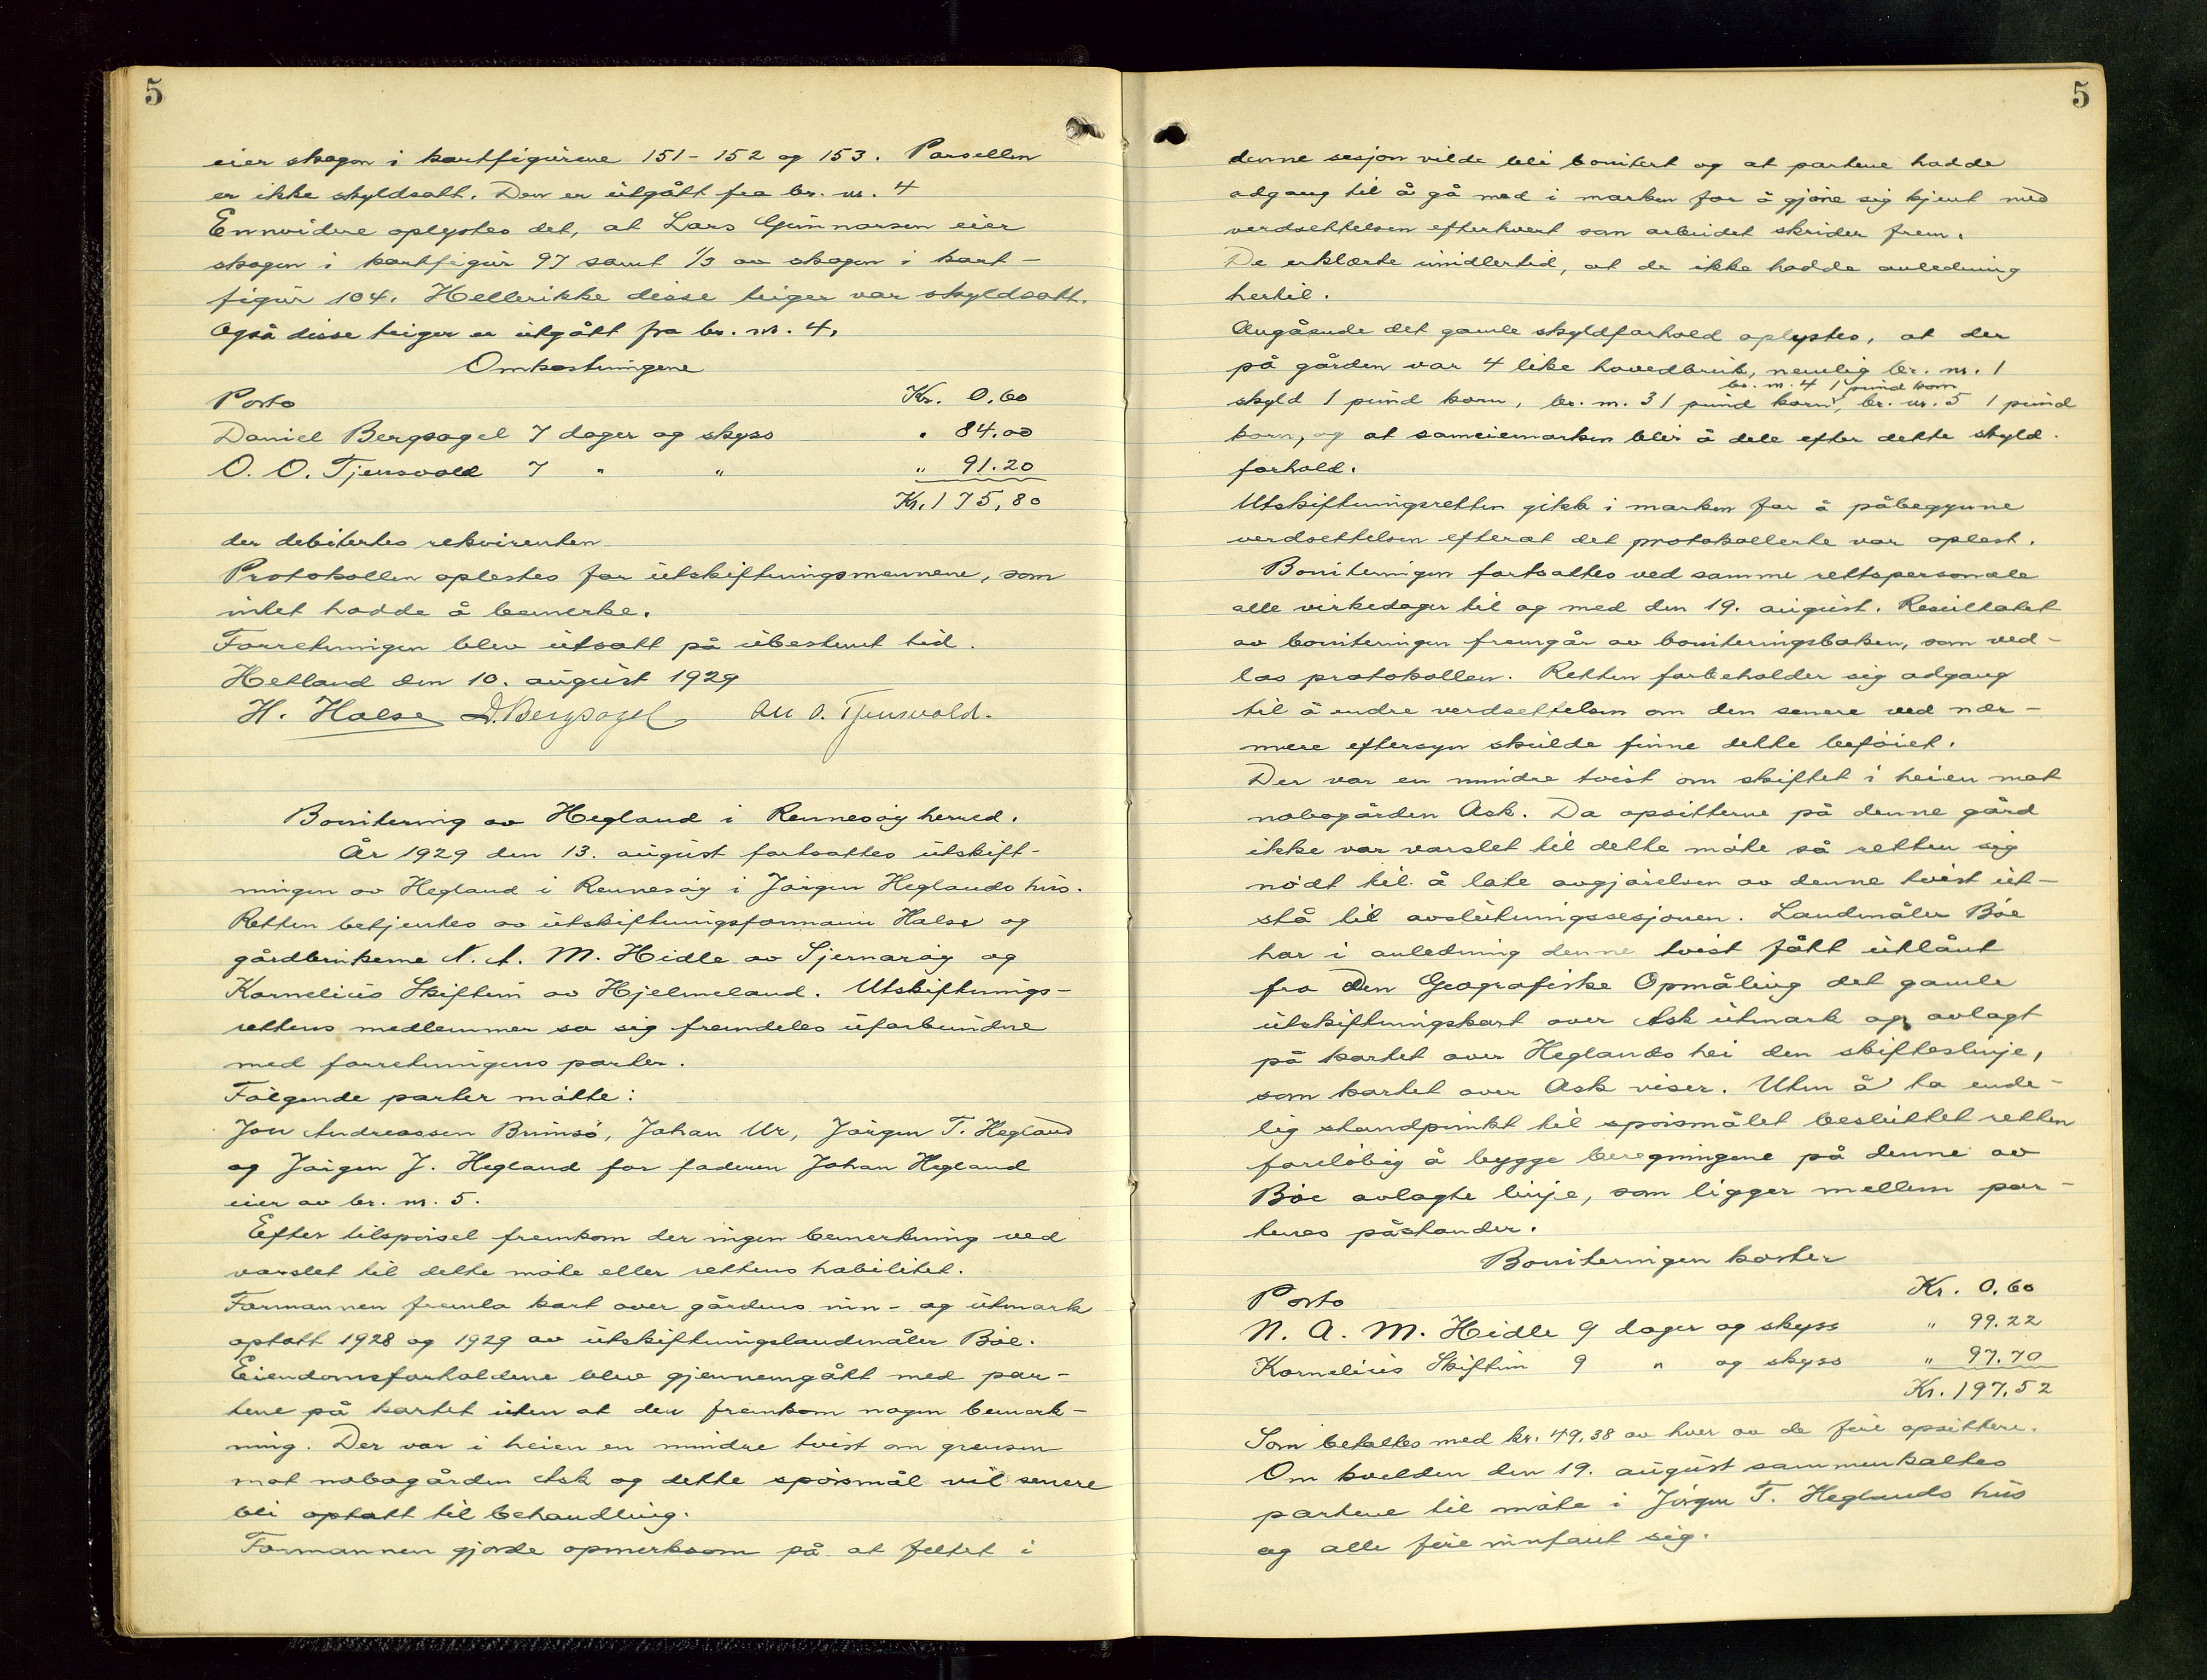 5
eier skogen i kartfigurene 151-152 og 153. Parsellen
er ikke skyldsatt. Den er utgått fra br. nr. 4
Ennvidere oplystes det, at Lars Gunnarsen eier
skogen i kartfigur 97 samt 1/3 av skogen i kart-
figur 104. Hellerikke disse teiger var skyldsatt.
Også disse teiger er utgått fra br. nr. 4.
Omkostningene
Porto Kr. 0.60
Daniel Bergsagel 7 dager og skyss " 84.00
O. O. Tjensvold 7 " " " 91.20
Kr. 175,80
der debitertes rekvirenten
Protokollen oplestes for utskiftningsmennene, som
intet hadde å bemerke.
Forretningen blev utsatt på ubestemt tid.
Hetland den 10. august 1929
H. Halse D. Bergsagel Ole O. Tjensvold.
Bonitering av Hegland i Rennesøy herred.
År 1929 den 13. august fortsattes utskift-
ningen av Hegland i Rennesøy i Jørgen Heglands hus.
Retten betjentes av utskiftningsformann Halse og
gårdbrukerne N. A. M. Hidle av Sjernarøy og
Kornelius Skiftun av Hjelmeland. Utskiftnings-
rettens medlemmer sa sig fremdeles uforbundne
med forretningens parter.
Følgende parter møtte:
Jon Andreassen Brimsø, Johan Ur, Jørgen T. Hegland
og Jørgen J. Hegland for faderen Johan Hegland
eier av br. nr. 5.
Efter tilspørsel fremkom der ingen bemerkning ved
varslet til dette møte eller rettens habilitet.
Formannen fremla kart over gårdens inn- og utmark
optatt 1928 og 1929 av utskiftningslandmåler Bøe.
Eiendomsforholdene blev gjennemgått med par-
tene på kartet uten at der fremkom nogen bemerk-
ning. Der var i heien en mindre tvist om grensen
mot nabogården Ask og dette spørsmål vil senere
bli optatt til behandling.
Formannen gjorde opmerksom på at feltet i
5
denne sesjon vilde bli bonitert og at partene hadde
adgang til å gå med i marken for å gjøre sig kjent med
verdsettelsen efterhvert som arbeidet skrider frem.
De erklærte imidlertid, at de ikke hadde anledning
hertil.
Angående det gamle skyldforhold oplystes, at der
på gården var 4 like hovedbruk, nemlig br. nr. 1
br. nr. 4 1 pund korn
skyld 1 pund korn, br. nr. 3 1 pund korn, br. nr. 5 1 pund
korn, og at sameiemarken blir å dele efter dette skyld-
forhold.
Utskiftningsretten gikk i marken for å påbegynne
verdsettelsen efterat det protokollerte var oplest.
Boniteringen fortsattes ved samme rettspersonale
alle virkedager til og med den 19. august. Resultatet
av boniteringen fremgår av boniteringsboken, som ved-
las protokollen. Retten forbeholder sig adgang
til å endre verdsettelsen om den senere ved nær-
mere eftersyn skulde finne dette beføiet.
Der var en mindre tvist om skiftet i heien mot
nabogården Ask. Da opsitterne på denne gård
ikke var varslet til dette møte så retten sig
nødt til å late avgjørelsen av denne tvist ut-
stå til avslutningssesjonen. Landmåler Bøe
har i anledning denne tvist fått utlånt
fra Den Geografiske Opmåling det gamle
utskiftningskart over Ask utmark og avlagt
på kartet over Heglands hei den skifteslinje,
som kartet over Ask viser. Uten å ta ende-
lig standpunkt til spørsmålet besluttet retten
foreløbig å bygge beregningene på denne av
Bøe avlagte linje, som ligger mellem par-
tenes påstander.
Boniteringen koster
Porto Kr. 0.60
N. A. M. Hidle 9 dager og skyss " 99.22
Kornelius Skiftun 9 " og skyss " 97.70
Kr. 197.52
Som betaltes med kr. 49,38 av hver av de fire opsittere.
Om kvelden den 19. august sammenkaltes
partene til møte i Jørgen T. Heglands hus
og alle fire innfant sig.